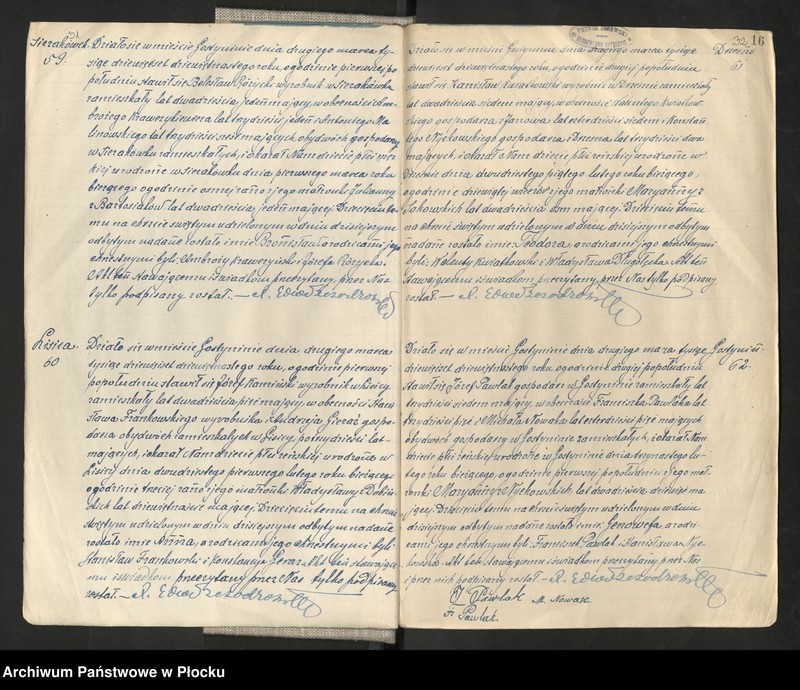 Sierakówek. Działo się w mieście Gostyninie dnia drugiego marca ty-
59. siąc dziewięćset dziewiętnastego roku, o godzinie pierwszej po
południu stawił się Bolesław Różycki wyrobnik w Sierakówku
zamieszkały lat dwadzieścia jeden mający, w obecności Am-
brożego Krawczyńskiego lat trzydzieści jeden i Antoniego Ma-
linowskiego lat trzydzieści mających, obydwóch gospodarzy
w Sierakówku zamieszkałych, i okazał Nam dziecię płci męz-
kiej urodzone w Sierakówku dnia pierwszego marca roku
bieżącego o godzinie ósmej rano z jego małżonki Julianny
z Bartosiaków lat dwadzieścia jeden mającej. Dziecięciu te-
mu na chrzcie świętym udzielonym w dniu dzisiejszym
odbytym nadane zostało imię Bronisław a rodzicami jego
chrzestnymi byli: Ambroży Krawczyński i Józefa Różycka.
Akt ten stawającemu i świadkom przeczytany, przez Nas
tylko podpisany został. —
Lisica. Działo się w mieście Gostyninie dnia drugiego marca
60 tysiąc dziewięćset dziewiętnastego roku, o godzinie pierwszej
popołudniu stawił się Józef Kamiński wyrobnik w Lisicy
zamieszkały lat dwadzieścia pięć mający, w obecności Stani-
sława Frankowskiego wyrobnika i Andrzeja Gieraź gospo-
darza obydwóch zamieszkałych w Lisicy, po trzydzieści lat
mających, i okazał Nam dziecię płci żeńskiej urodzone w
Lisicy dnia dwudziestego pierwszego lutego roku bieżącego
o godzinie trzeciej rano z jego małżonki Władysławy z Dobiń-
skich lat dziewiętnaście mającej. Dziecięciu temu na chrzcie
świętym udzielonym w dniu dzisiejszym odbytym nadane
zostało imię Anna, a rodzicami jego chrzestnymi byli:
Stanisław Frankowski i Konstancja Gieraź. Akt ten stawające-
mu i świadkom przeczytany przez Nas tylko podpisany
został. —
32 16
Działo się w mieście Gostyninie dnia drugiego marca tysiąc Drzewno
dziewięćset dziewiętnastego roku, o godzinie drugiej popołudniu 61
stawił się Stanisław Kwiatkowski wyrobnik w zamieszkały
lat dwadzieścia siedem mający, w obecności Walentego Kwiatkow-
skiego gospodarza lat czterdzieści siedem i Konstan-
tego gospodarza z lat trzydzieści dwa
mających, i okazał Nam dziecię płci żeńskiej urodzone w
dnia dwudziestego piątego lutego roku bieżącego,
o godzinie dziewiątej wieczór z jego małżonki Maryanny z
Żakowskich lat dwadzieścia osm mającej. Dziecięciu temu
na chrzcie świętym udzielonym w dniu dzisiejszym odbytym
nadane zostało imię Teodora, a rodzicami jego chrzestnymi
byli: Walenty Kwiatkowski i Władysława Długołęcka. Akt ten
stawającemu i świadkom przeczytany, przez Nas tylko podpisany
został. —
Działo się w mieście Gostyninie dnia drugiego marca tysiąc Gostynin
dziewięćset dziewiętnastego roku, o godzinie drugiej popołudniu 62.
stawił się Józef Pawlak gospodarz w Gostyninie zamieszkały lat
trzydzieści siedem mający, w obecności Franciszka Pawlaka lat
trzydzieści pięć i Michała Nowaka lat czterdzieści pięć mających
obydwóch gospodarzy w Gostyninie zamieszkałych, i okazał Nam
dziecię płci żeńskiej urodzone w Gostyninie dnia trzynastego lu-
tego roku bieżącego, o godzinie pierwszej popołudniu z jego mał-
żonki Maryanny z Tyczkowskich, lat dwadzieścia ma
jącej. Dziecięciu temu na chrzcie świętym udzielonym w dniu
dzisiejszym odbytym nadane zostało imię Genowefa a rodzi-
cami jego chrzestnymi byli: Franciszek Pawlak i Stanisława
Akt ten stawającemu i świadkom przeczytany przez Nas
i przez nich podpisany został. —
J. Pawlak M. Nowak
F. Pawlak.
Archiwum Państwowe w Płocku